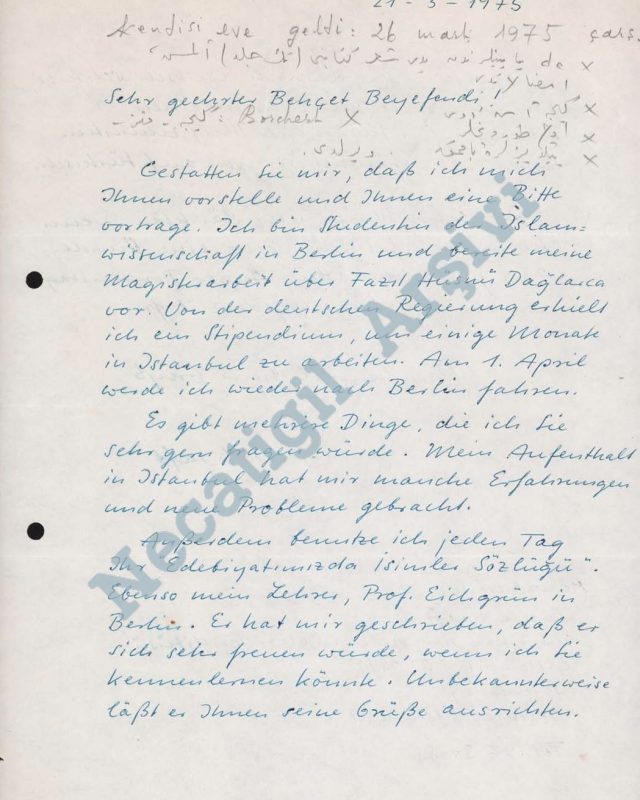 21-3-1975
Kendisi eve geldi: 26 mart 1975 çarş.
Sehr geehrter Behçet Beyefendi!
Borchert
Gestatten Sie mir, daß ich mich
Ihnen vorstelle und Ihnen eine Bitte
vortrage. Ich bin Studentin der Islam=
wissenschaft in Berlin und bereite meine
Magisterarbeit über Fazıl Hüsnü Dağlarca
vor. Von der deutschen Regierung erhielt
ich ein Stipendium, um einige Monate
in Istanbul zu arbeiten. Am 1. April
werde ich wieder nach Berlin fahren.
Es gibt mehrere Dinge, die ich Sie
sehr gern fragen würde. Mein Aufenthalt
in Istanbul hat mir manche Erfahrungen
und neue Probleme gebracht.
Außerdem benutze ich jeden Tag
Ihr Edebiyatımızda İsimler Sözlüğü".
Ebenso mein Lehrer, Prof. Eichgrün in
Berlin. Er hat mir geschrieben, daß er
sich sehr freuen würde, wenn ich Sie
kennenlernen könnte. Unbekannterweise
läßt er Ihnen seine Grüße ausrichten.
Necatigil Arşivi